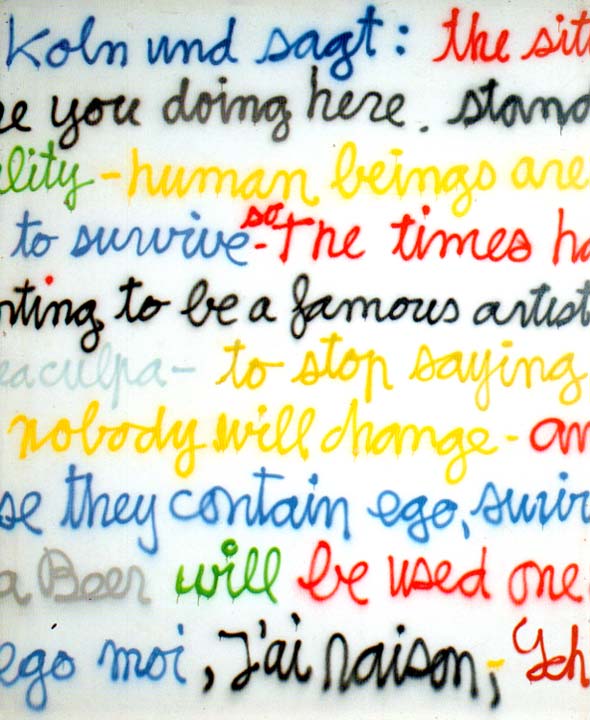 Koln und sagt: the sit
re you doing here. stand
lity - human beings are
to survive so - The times ha
nting to be a famous artist
eaculpa - to stop saying
nobody will change - an
se they contain ego, surviv
a Beer will be used one
ego moi, J'ai raison, Ich